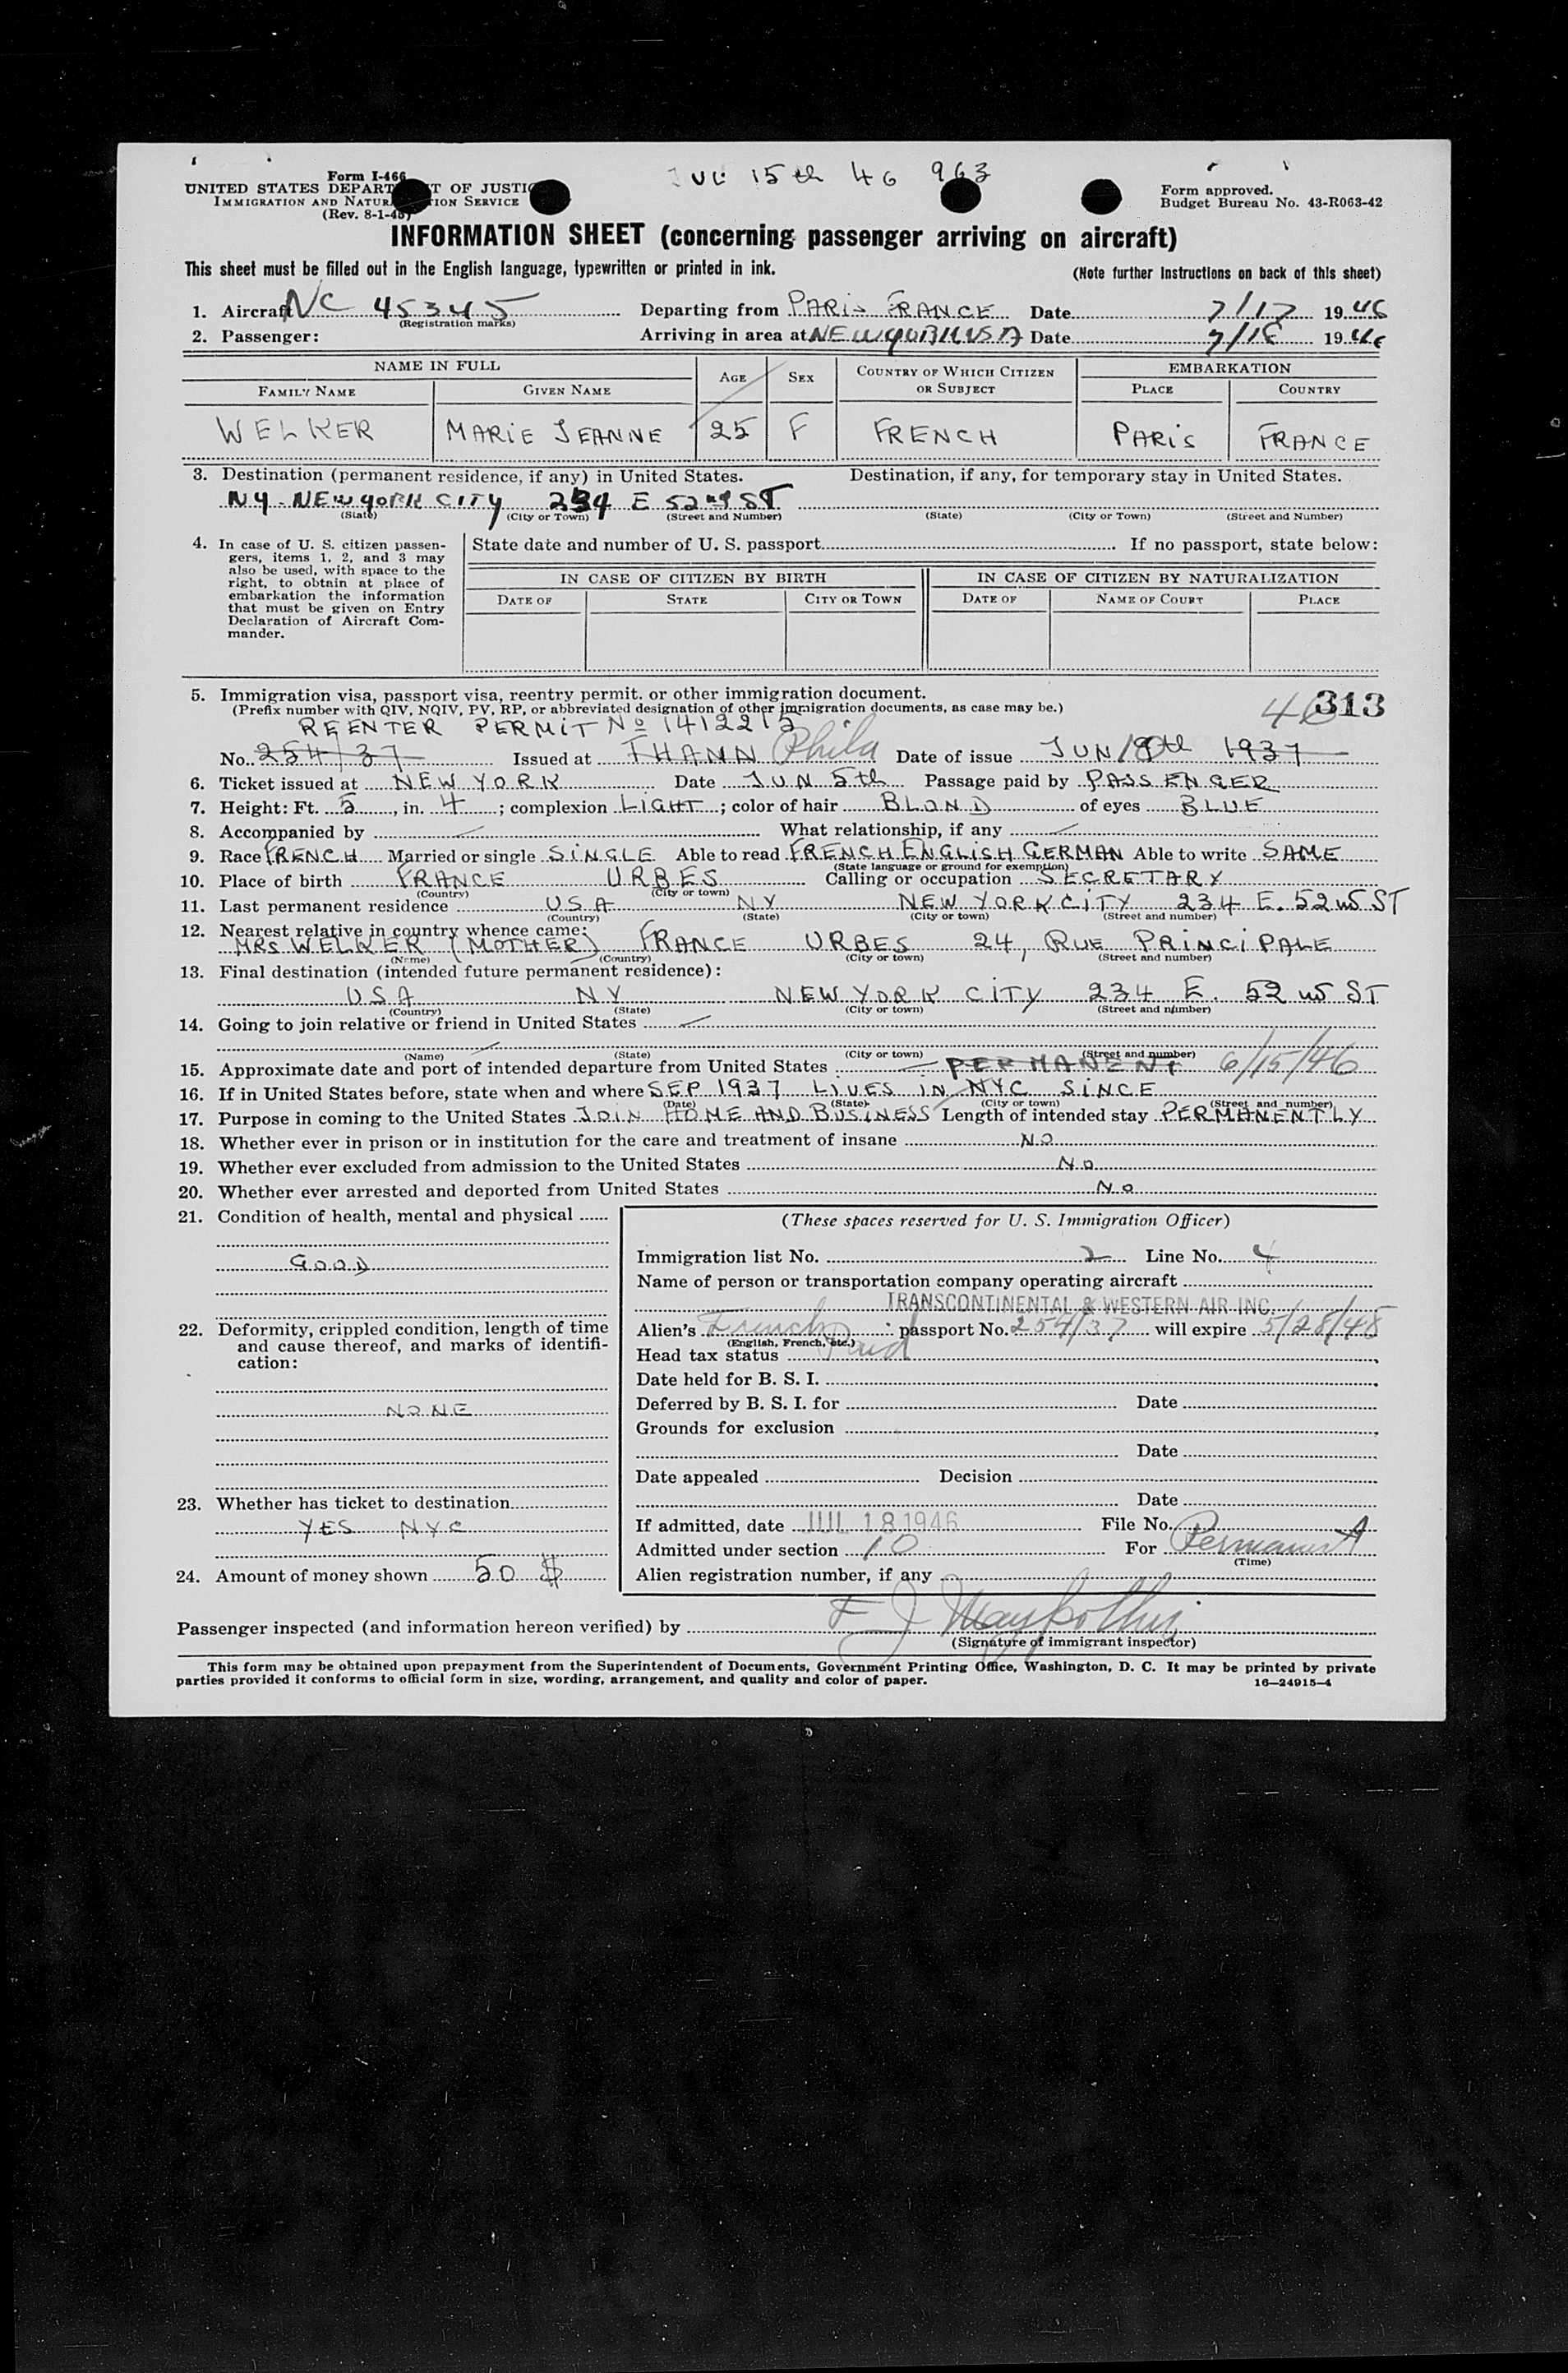 Form I-466
UNITED STATES DEPART T OF JUSTIC
IMMIGRATION AND NATUR TION SERVICE
(Rev. 8-1-45)
JUL 15th 46 963
Form approved.
Budget Bureau No. 43-R063-42
INFORMATION SHEET (concerning passenger arriving on aircraft)
This sheet must be filled out in the English language, typewritten or printed in ink. (Note further instructions on back of this sheet)
1. Aircraft NC 45345 Departing from PARIS FRANCE Date 7/17 1946
(Registration marks)
2. Passenger: Arriving in area at NEW YORK USA Date 7/18 1946
NAME IN FULL AGE SEX COUNTRY OF WHICH CITIZEN OR SUBJECT EMBARKATION
FAMILY NAME GIVEN NAME PLACE COUNTRY
WELKER MARIE JEANNE 25 F FRENCH PARIS FRANCE
3. Destination (permanent residence, if any) in United States. Destination, if any, for temporary stay in United States.
NY - NEW YORK CITY 234 E 52nd ST
(State) (City or Town) (Street and Number) (State) (City or Town) (Street and Number)
4. In case of U. S. citizen passen-
gers, items 1, 2, and 3 may
also be used, with space to the
right, to obtain at place of
embarkation the information
that must be given on Entry
Declaration of Aircraft Com-
mander.
State date and number of U. S. passport If no passport, state below:
IN CASE OF CITIZEN BY BIRTH IN CASE OF CITIZEN BY NATURALIZATION
DATE OF STATE CITY OR TOWN DATE OF NAME OF COURT PLACE
5. Immigration visa, passport visa, reentry permit, or other immigration document. 313
(Prefix number with QIV, NQIV, PV, RP, or abbreviated designation of other immigration documents, as case may be.)
REENTER PERMIT No 1412215
No. 254/37 Issued at THANN Phila Date of issue JUN 18th 1937
6. Ticket issued at NEW YORK Date JUN 5th Passage paid by PASSENGER
7. Height: Ft. 5, in. 4; complexion LIGHT; color of hair BLOND of eyes BLUE
8. Accompanied by What relationship, if any
9. Race FRENCH Married or single SINGLE Able to read FRENCH ENGLISH GERMAN Able to write SAME
(State language or ground for exemption)
10. Place of birth FRANCE URBES Calling or occupation SECRETARY
(Country) (City or town)
11. Last permanent residence USA NY NEW YORK CITY 234 E. 52nd ST
(Country) (State) (City or town) (Street and number)
12. Nearest relative in country whence came:
MRS WELKER (MOTHER) FRANCE URBES 24, RUE PRINCIPALE
(Name) (Country) (City or town) (Street and number)
13. Final destination (intended future permanent residence):
USA NY NEW YORK CITY 234 E. 52nd ST
(Country) (State) (City or town) (Street and number)
14. Going to join relative or friend in United States
(Name) (State) (City or town) (Street and number)
15. Approximate date and port of intended departure from United States PERMANENT 6/15/46
16. If in United States before, state when and where SEP 1937 LIVES IN NYC SINCE
(Date) (State) (City or town) (Street and number)
17. Purpose in coming to the United States JOIN HOME AND BUSINESS Length of intended stay PERMANENTLY
18. Whether ever in prison or in institution for the care and treatment of insane NO
19. Whether ever excluded from admission to the United States NO
20. Whether ever arrested and deported from United States NO
21. Condition of health, mental and physical
GOOD
22. Deformity, crippled condition, length of time
and cause thereof, and marks of identifi-
cation:
NONE
23. Whether has ticket to destination
YES NYC
24. Amount of money shown 50 $
(These spaces reserved for U. S. Immigration Officer)
Immigration list No. 2 Line No. 4
Name of person or transportation company operating aircraft
TRANSCONTINENTAL & WESTERN AIR INC.
Alien's French passport No. 254/37 will expire 5/28/48
(English, French, etc.)
Head tax status Paid
Date held for B. S. I.
Deferred by B. S. I. for Date
Grounds for exclusion
Date
Date appealed Decision
Date
If admitted, date JUL 18 1946 File No.
Admitted under section 10 For Permanent
(Time)
Alien registration number, if any
Passenger inspected (and information hereon verified) by F J
(Signature of immigrant inspector)
This form may be obtained upon prepayment from the Superintendent of Documents, Government Printing Office, Washington, D. C. It may be printed by private
parties provided it conforms to official form in size, wording, arrangement, and quality and color of paper. 16—24915-4